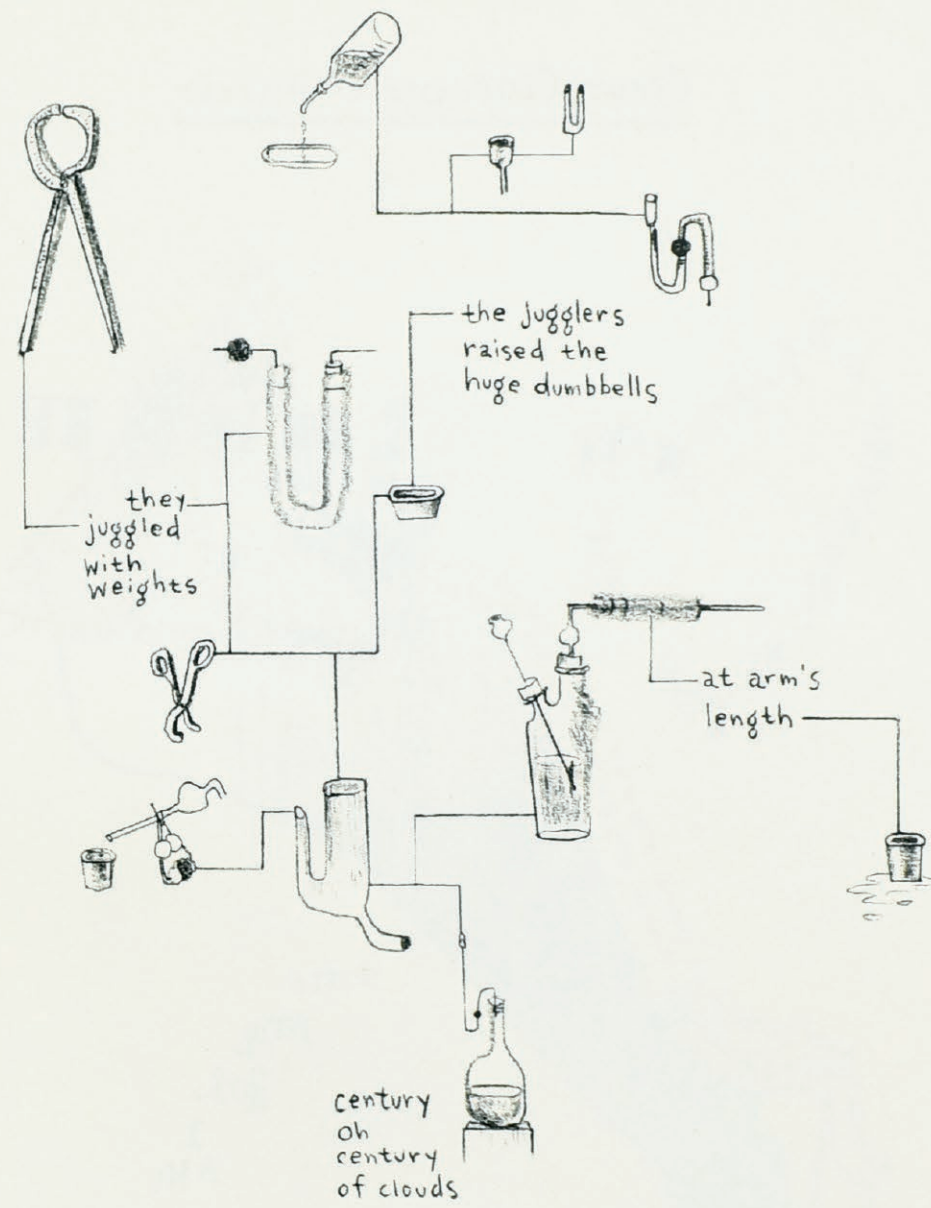 the jugglers
raised the
huge dumbbells
they
juggled
with
weights
at arm's
length
century
oh
century
of clouds